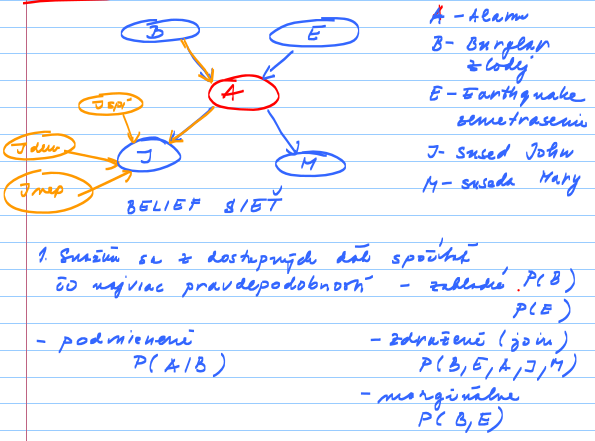 B
E
A
J spí
J dom
J nep
J
M
BELIEF SIEŤ
A - Alarm
B - Burglar
zlodej
E - Earthquake
zemetrasenie
J - sused John
M - suseda Mary
1. Snažím sa z dostupných dát spočítať
čo najviac pravdepodobností - základné P(B)
P(E)
- podmienené
P(A|B)
- združené (join)
P(B, E, A, J, M)
- marginálne
P(B, E)